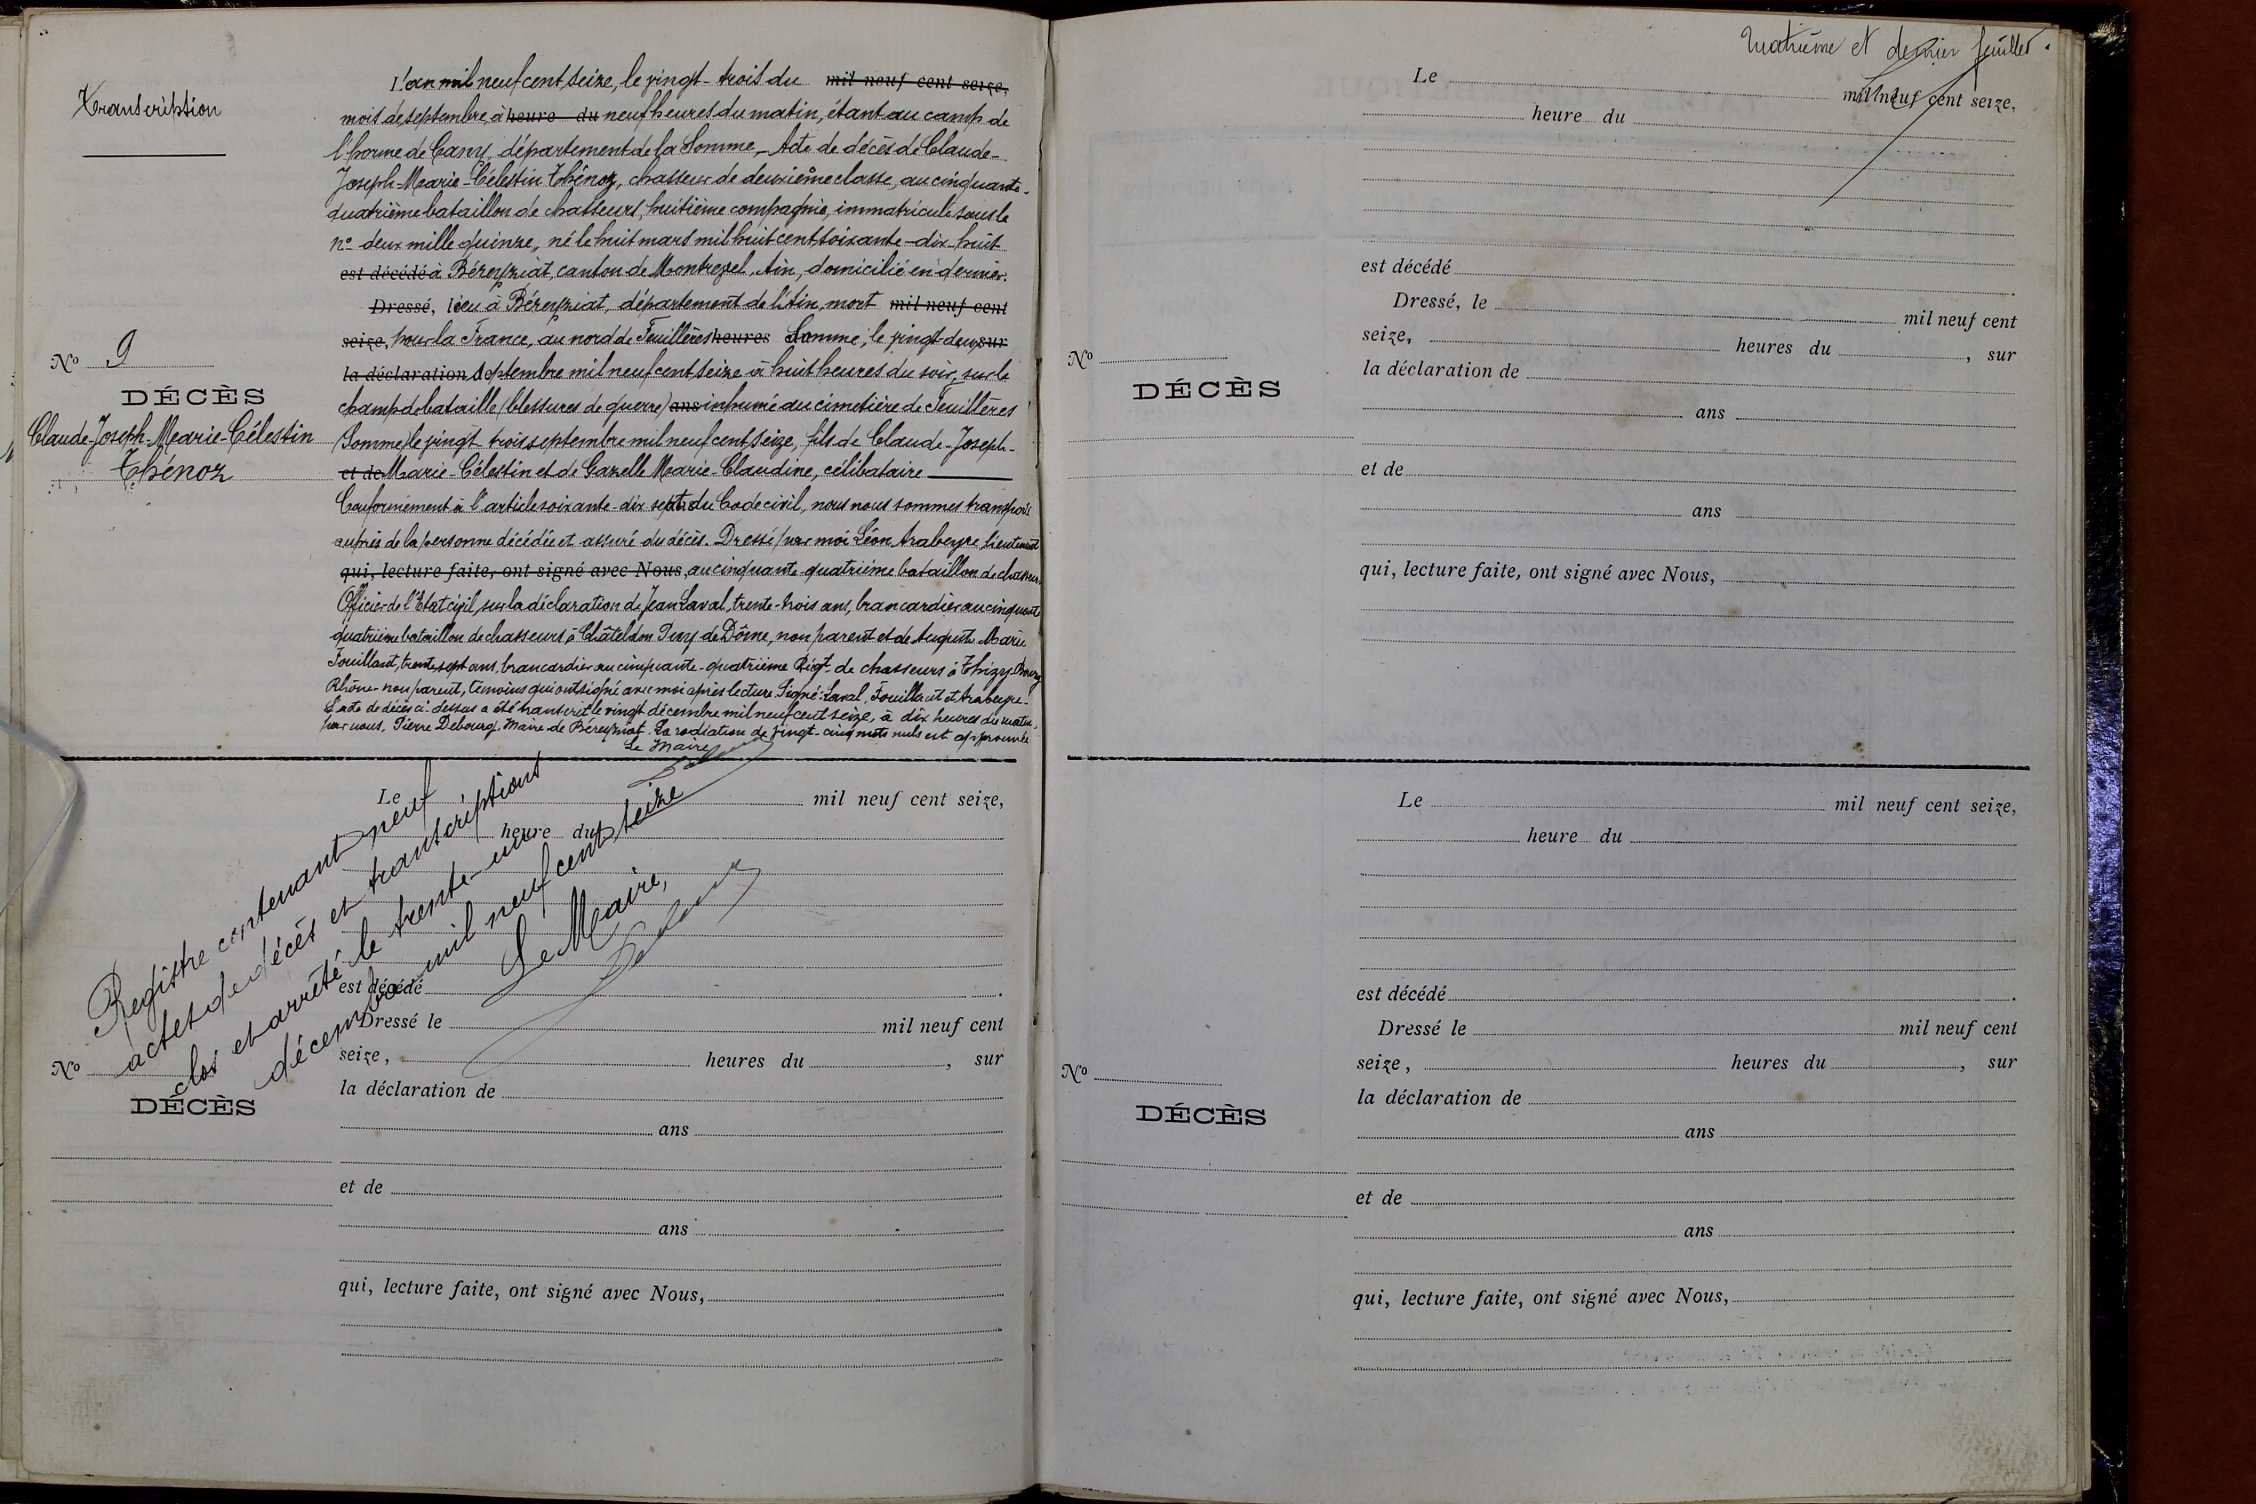 Transcription
N° 9
DÉCÈS
Claude-Joseph-Marie-Célestin
Thénoz
L'an mil neuf cent seize, le vingt-trois du mil neuf cent seize,
mois de septembre, à heure du neuf heures du matin, étant au camp de
l'horme de Cany, département de la Somme, - Acte de décès de Claude-
Joseph-Marie-Célestin Thénoz, chasseur de deuxième classe, au cinquante-
quatrième bataillon de chasseurs, huitième compagnie, immatriculé sous le
n° deux mille quinze, né le huit mars mil huit cent soixante-dix-huit
est décédé à Béreyziat, canton de Montrevel, Ain, domicilié en dernier
Dressé, lieu à Béreyziat, département de l'Ain, mort mil neuf cent
seize, pour la France, au nord de Feuillères heures Somme, le vingt-deux sur
la déclaration septembre mil neuf cent seize à huit heures du soir, sur le
champ de bataille (blessures de guerre) ans inhumé au cimetière de Feuillères
(Somme) le vingt trois septembre mil neuf cent seize, fils de Claude-Joseph-
et de Marie-Célestin et de Gazelle Marie-Claudine, célibataire
Conformément à l'article soixante-dix sept du Code civil, nous nous sommes transporté
auprès de la personne décédée et assuré du décès. Dressé par moi Léon Arabeyre lieutenant
qui, lecture faite, ont signé avec Nous, au cinquante-quatrième bataillon de chasseurs
Officier de l'Etat civil, sur la déclaration de Jean Laval, trente-trois ans, brancardier au cinquante
quatrième bataillon de chasseurs à Châteldon Puy de Dôme, non parent et de Auguste Marie
Fouillant, trente sept ans, brancardier au cinquante-quatrième Rigt de chasseurs à Thizy Bourg
Rhône - non parent, témoins qui ont signé avec moi après lecture. Signé: Laval, Fouillant et Arabeyre.
L'acte de décès ci-dessus a été transcrit le vingt décembre mil neuf cent seize, à dix heures du matin,
par nous, Pierre Debourg, Maire de Béreyziat. La radiation de vingt-cinq mots nuls est approuvée
Le Maire
Registre contenant neuf
actes de décès et transcriptions
clos et arrêté le trente-un
décembre mil neuf cent seize
Le Maire,
Le mil neuf cent seize,
heure du
est décédé
Dressé le mil neuf cent
seize, heures du , sur
la déclaration de
ans
et de
ans
qui, lecture faite, ont signé avec Nous,
N°
DÉCÈS
Quatrième et dernier feuillet.
Le mil neuf cent seize,
heure du
est décédé
Dressé, le mil neuf cent
seize, heures du , sur
la déclaration de
ans
et de
ans
qui, lecture faite, ont signé avec Nous,
N°
DÉCÈS
Le mil neuf cent seize,
heure du
est décédé
Dressé le mil neuf cent
seize, heures du , sur
la déclaration de
ans
et de
ans
qui, lecture faite, ont signé avec Nous,
N°
DÉCÈS